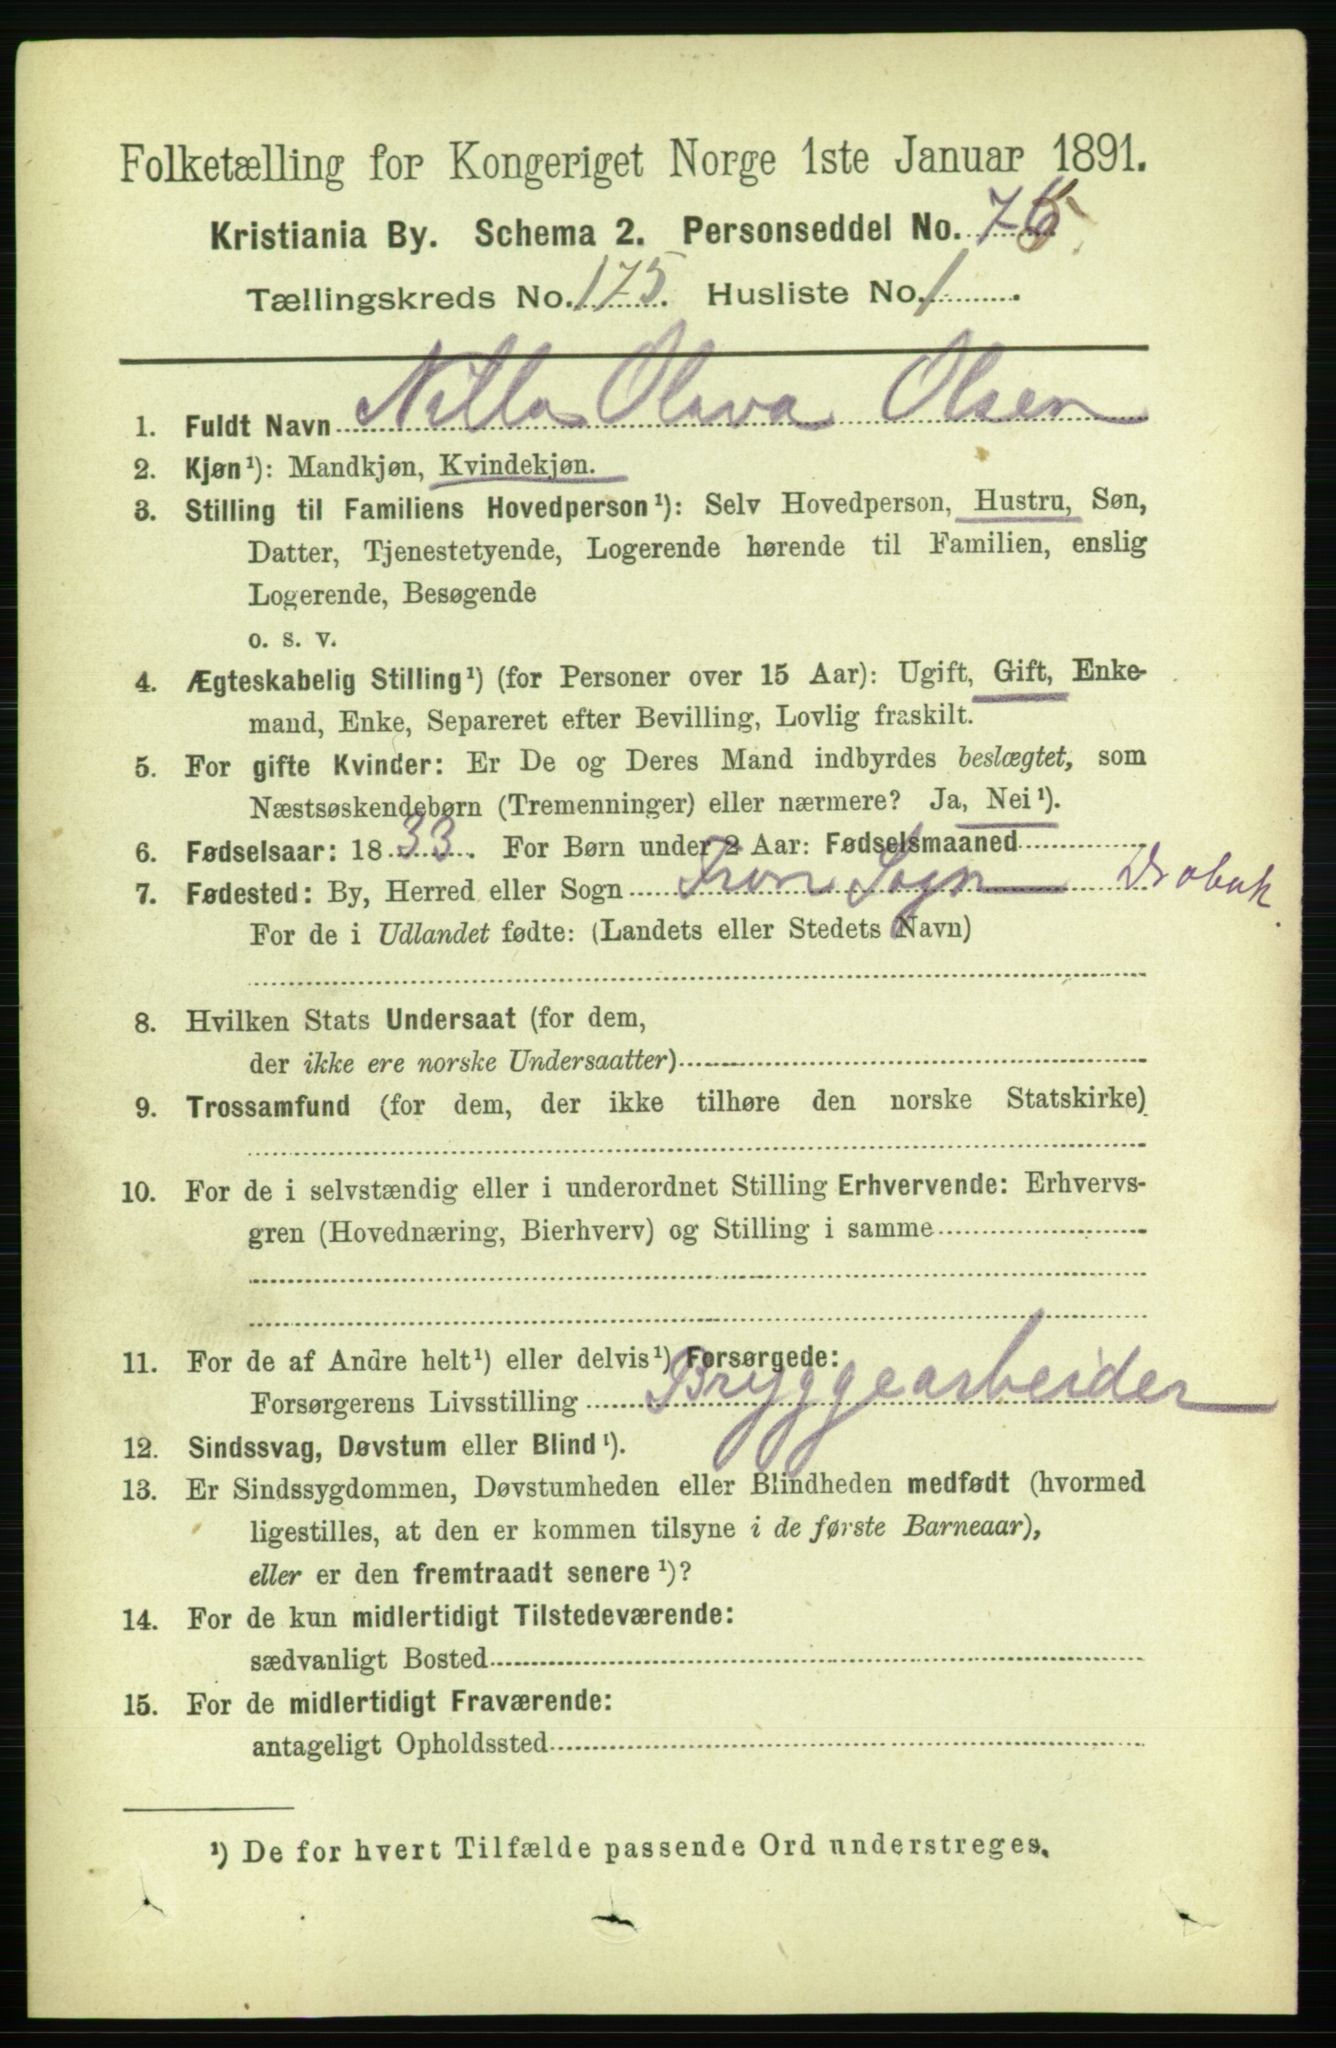 Folketælling for Kongeriget Norge 1ste Januar 1891.
Kristiania By. Schema 2. Personseddel No. 75
Tællingskreds No. 175. Husliste No. 1.
1. Fuldt Navn Nilla Olava Olsen
2. Kjøn¹): Mandkjøn, Kvindekjøn.
3. Stilling til Familiens Hovedperson¹): Selv Hovedperson, Hustru, Søn,
Datter, Tjenestetyende, Logerende hørende til Familien, enslig
Logerende, Besøgende
o. s. v.
4. Ægteskabelig Stilling¹) (for Personer over 15 Aar): Ugift, Gift, Enke-
mand, Enke, Separeret efter Bevilling, Lovlig fraskilt.
5. For gifte Kvinder: Er De og Deres Mand indbyrdes beslægtet, som
Næstsøskendebørn (Tremenninger) eller nærmere? Ja, Nei¹).
6. Fødselsaar: 1833. For Børn under 2 Aar: Fødselsmaaned
7. Fødested: By, Herred eller Sogn Fron Sogn Drøbak.
For de i Udlandet fødte: (Landets eller Stedets Navn)
8. Hvilken Stats Undersaat (for dem,
der ikke ere norske Undersaatter)
9. Trossamfund (for dem, der ikke tilhøre den norske Statskirke)
10. For de i selvstændig eller i underordnet Stilling Erhvervende: Erhvervs-
gren (Hovednæring, Bierhverv) og Stilling i samme
11. For de af Andre helt¹) eller delvis¹) Forsørgede:
Forsørgerens Livsstilling Bryggearbeider
12. Sindssvag, Døvstum eller Blind¹).
13. Er Sindssygdommen, Døvstumheden eller Blindheden medfødt (hvormed
ligestilles, at den er kommen tilsyne i de første Barneaar),
eller er den fremtraadt senere¹)?
14. For de kun midlertidigt Tilstedeværende:
sædvanligt Bosted
15. For de midlertidigt Fraværende:
antageligt Opholdssted
¹) De for hvert Tilfælde passende Ord understreges.